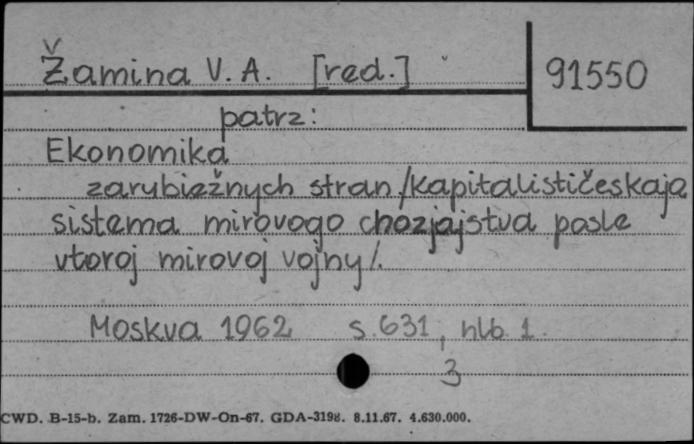 Žamina V. A. [red.] 91550
patrz:
Ekonomika
zarubiežnych stran /kapitalističeskaja
sistema mirovogo chozjajstva posle
vtoroj mirovoj vojny/.
Moskva 1962 s. 631, nlb. 1.
3
CWD. B-15-b. Zam. 1726-DW-On-67. GDA-3198. 8.11.67. 4.630.000.